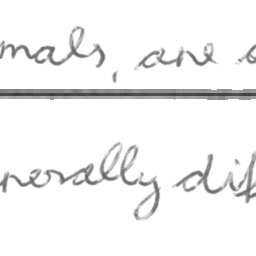 mals, are
nerally dif